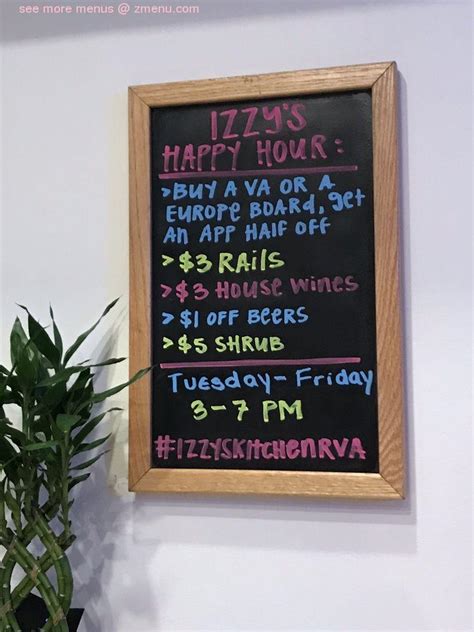 see more menus @ zmenu.com
IZZY'S
HAPPY HOUR:
>BUY A VA OR A
EUROPE BOARD, get
AN APP HALF OFF
>$3 RAILS
>$3 HOUSE WINES
>$1 OFF BEERS
>$5 SHRUB
TUESDAY-FRIDAY
3-7 PM
#IZZYSKITCHENRVA